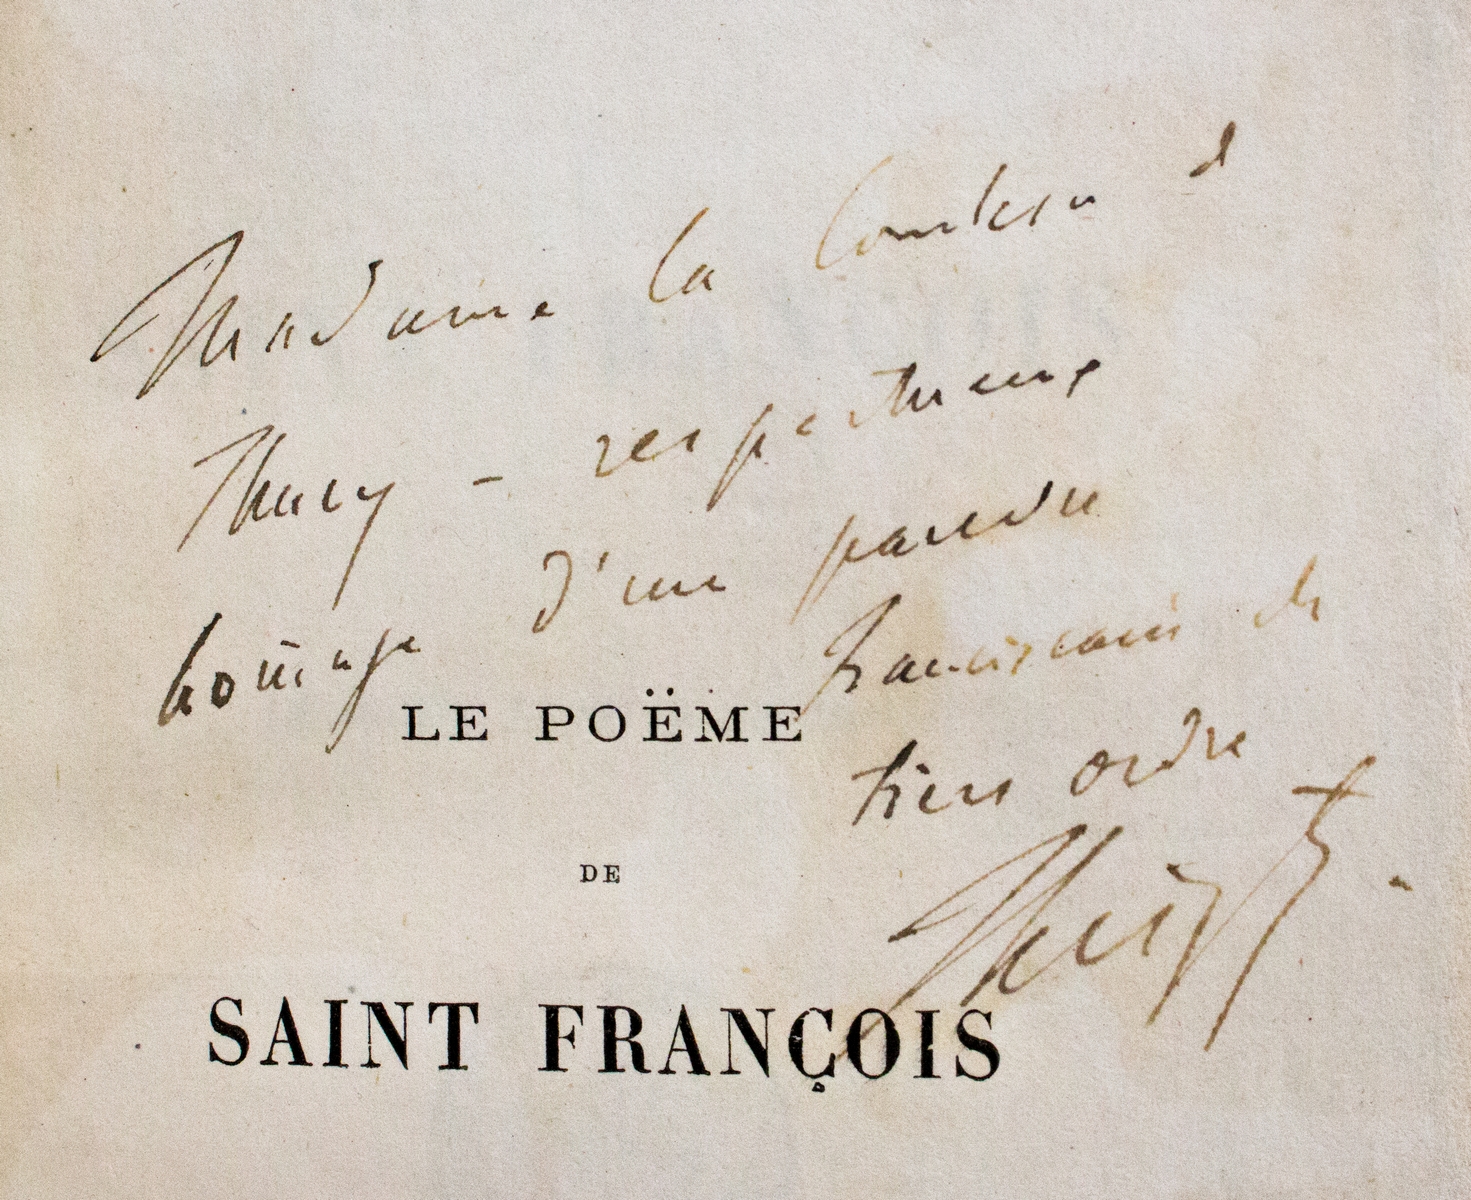 Madame la Comtesse d
Thury – respectueux
hom̄age d'un pauvre
franciscain de
LE POËME
tiers ordre
DE
SAINT FRANÇOIS